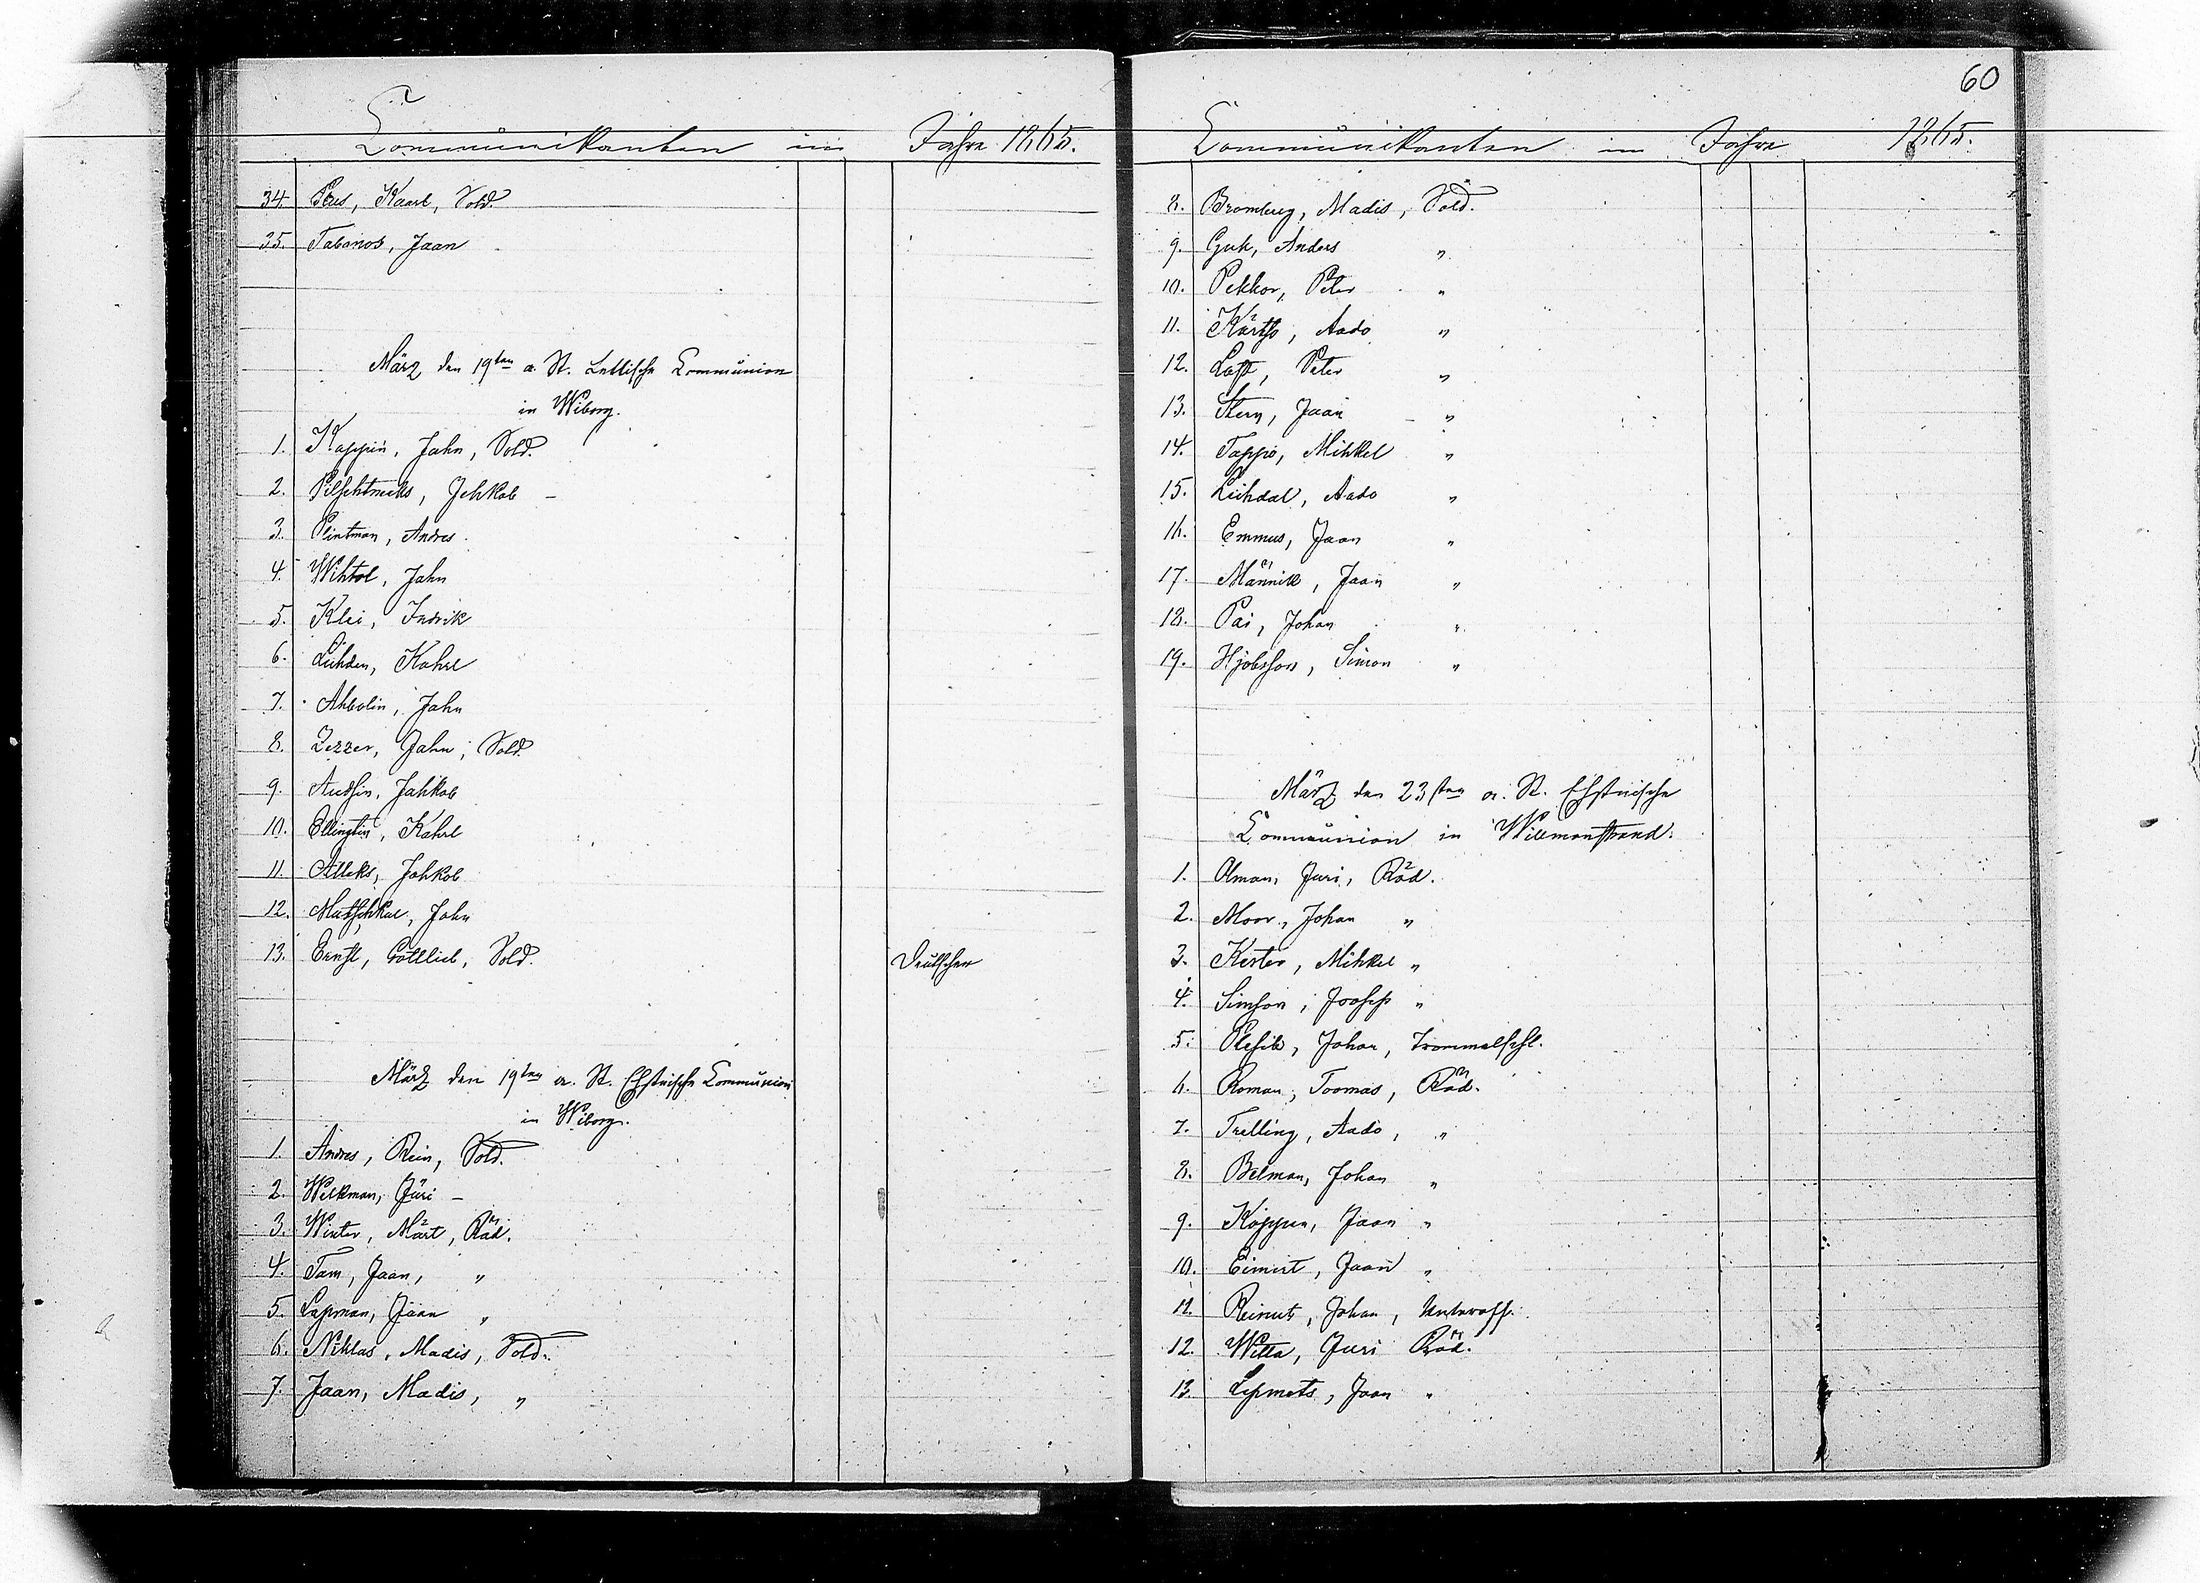 Communikanten im Jahre 1865.
34. Peus, Kaarl, Sold.
35. Tabonos, Jaan
März den 19ten a. St. Lettische Communion
in Wiborg.
1. Kappin, Jahn, Sold.
2. Pilschtneeks, Jehkob –
3. Plintman, Andres.
4. Wihtol, Jahn
5. Klei, Indrik
6. Leihden, Kahrl
7. Ahbolin, Jahn
8. Zezzer, Jahn, Sold.
9. Audsin, Jahkob
10. Ellingtin, Kahrl
11. Alleks, Jahkob
12. Mutschkul, Jahn
13. Ernst, Gottlieb, Sold. Deutscher
März den 19ten a. St. Ehstnische Communion
in Wiborg.
1. Andres, Rein, Sold.
2. Welkman, Jüri –
3. Winter, Märt, Räd.
4. Tam, Jaan, "
5. Lapman, Jaan "
6. Niklas, Madis, Sold.
7. Jaan, Madis, "
60
Communikanten im Jahre 1865.
8. Bromberg, Madis, Sold.
9. Guk, Anders "
10. Pekkor, Peter "
11. Aado "
12. Peter "
13. Stern, Jaan "
14. Tappo, Mihkel "
15. Leihdal, Aado "
16. Emmus, Jaan "
17. Männik, Jaan "
18. Pai, Johan "
19. Simon "
März den 23sten a. St. Ehstnische
Communion in Wilmanstrand.
1. Olman, Juri, Räd.
2. Moor, Johan "
3. Kester, Mihkel "
4. Simson, Joosep "
5. Johan, Trommelschl.
6. Roman, Toomas, Räd.
7. Trelling, Aado, "
8. Belman, Johan "
9. Koppen, Jaan "
10. Eimert, Jaan "
11. Reinut, Johan, Unteroff.
12. Willa, Juri Räd.
13. Lepmets, Jaan "